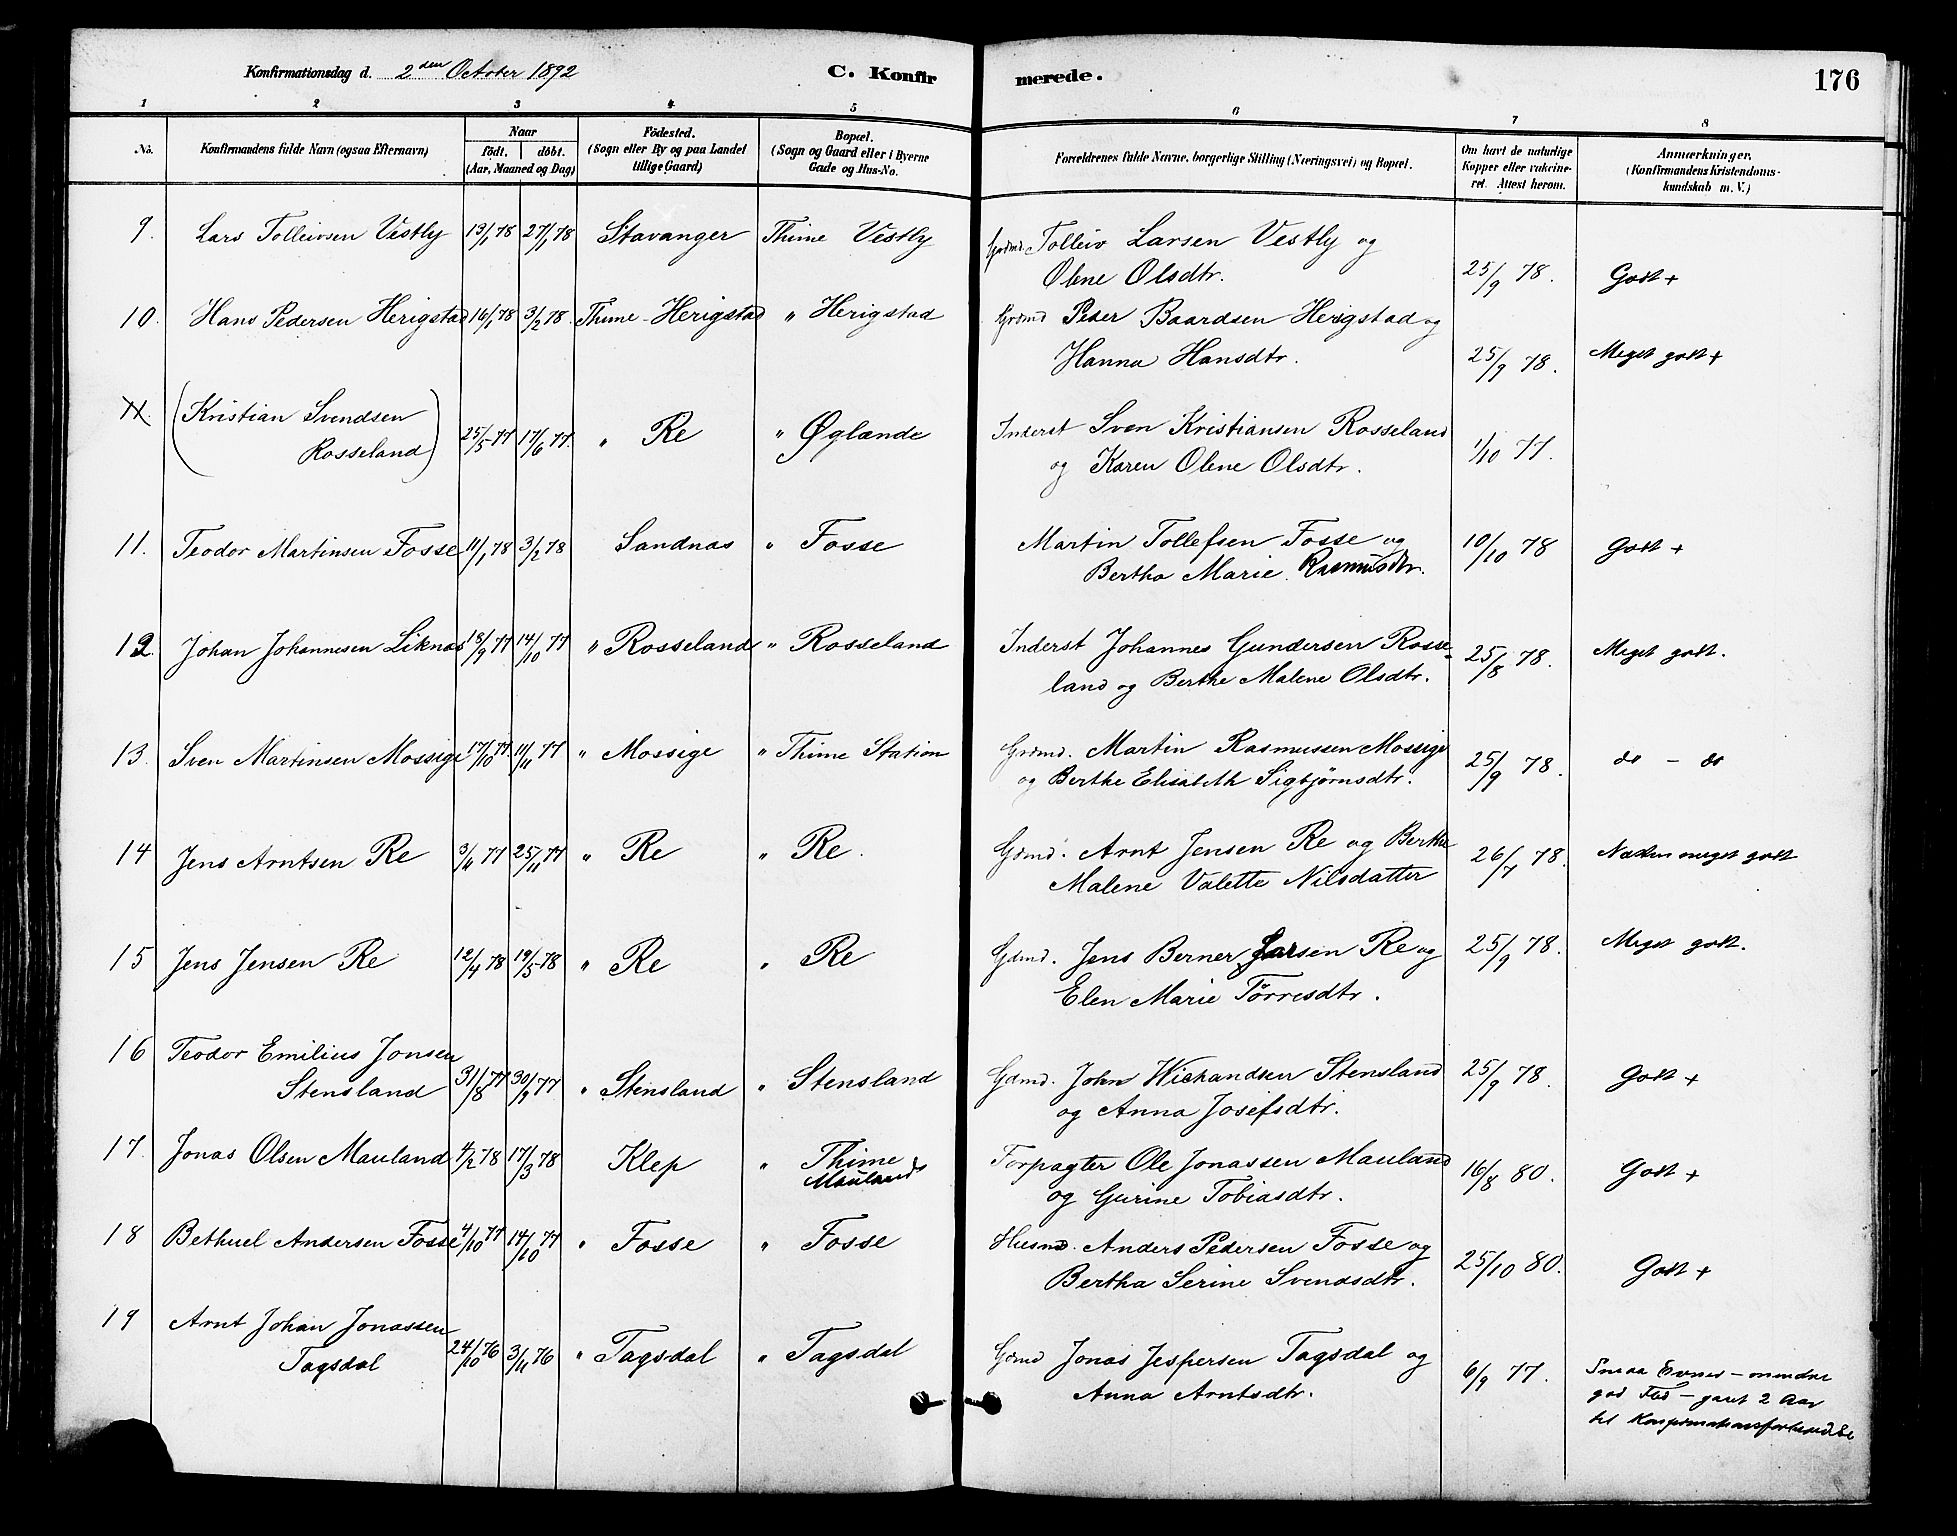 Konfirmationsdag d. 2den October 1892 C. Konfirmerede. 176
1 2 3 4 5 6 7 8
No. Konfirmandens fulde Navn (ogsaa Efternavn) Naar Födested. Bopæl. Forældrenes fulde Navne, borgerlige Stilling (Næringsvei) og Bopæl. Om havt de naturlige Anmærkninger.
født. døbt. (Sogn eller By og paa Landet (Sogn og Gaard eller i Byerne Kopper eller vakcine- (Konfirmandens Kristendoms-
(Aar, Maaned og Dag) tillige Gaard) Gade og Hus-No. ret. Attest herom. kundskab m. V.)
9. Lars Tolleivsen Vestly 13/1 78 27/1 78 Stavanger Thime Vestly Grdmd. Tolleiv Larsen Vestly og
Olene Olsdtr. 25/9 78. Godt +
10. Hans Pedersen Herigstad 16/1 78 3/2 78. Thime - Herigstad " Herigstad Grdmd Peder Baardsen Herigstad og
Hanna Hansdtr. 25/9 78. Meget godt +
11. (Kristian Svendsen
Rosseland) 25/5 77 17/6 77. " Re " Øglænde Inderst Sven Kristiansen Rosseland
og Karen Olene Olsdtr. 1/10 77.
11. Teodor Martinsen Fosse 11/1 78 3/2 78 Sandnas " Fosse Martin Tollefsen Fosse og
Bertha Marie Rasmusdtr. 10/10 78 Godt +
12. Johan Johannesen Liknas 18/9 77 14/10 77 " Rosseland " Rosseland Inderst Johannes Gundersen Rosse-
land og Berthe Malene Olsdtr. 25/8 78. Meget godt.
13. Sven Martinsen Mossige 17/10 77. 11/11 77 " Mossige " Thime Station Grdmd. Martin Rasmussen Mossige
og Berthe Elisabeth Sigbjørnsdtr. 25/9 78. do - do
14 Jens Arntsen Re 3/11 77 25/11 77 " Re " Re. Gdmd. Arnt Jensen Re og Berthe
Malene Valette Nilsdatter 26/7 78. Næsten meget godt
15 Jens Jensen Re 12/4 78 19/5 78 " Re " Re Gdmd. Jens Berner Larsen Re og
Elen Marie Tørresdtr. 25/9 78. Meget godt.
16 Teodor Emilius Jonsen
Stensland 31/8 77 30/9 77. " Stensland " Stensland Gdmd. John Wichandsen Stensland
og Anna Josefsdtr. 25/9 78. Godt +
17. Jonas Olsen Mauland 4/2 78 17/3 78 Klep " Thime
Mauland Forpagter Ole Jonassen Mauland
og Gurine Tobiasdtr. 16/8 80. Godt +
18 Bethuel Andersen Fosse 4/10 77 14/10 77 " Fosse " Fosse Husmd. Anders Pedersen Fosse og
Bertha Serine Svendsdtr. 25/10 80. Godt +
19 Arnt Johan Jonassen
Tagsdal 24/10 76 3/11 76 " Tagsdal " Tagsdal Gdmd Jonas Jespersen Tagsdal og
Anna Arntsdtr. 6/9 77. Smaa Evner - mindre
god Flid - gaaet 2 Aar
til Konfirmationsforberedelse